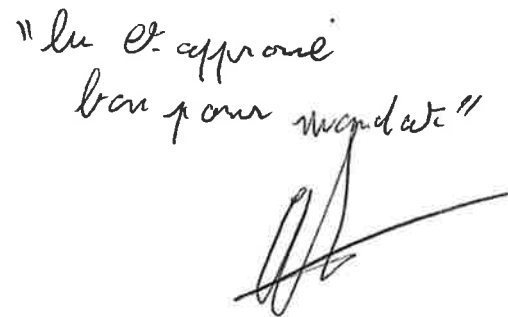 "lu et approuvé
bon pour mandat"